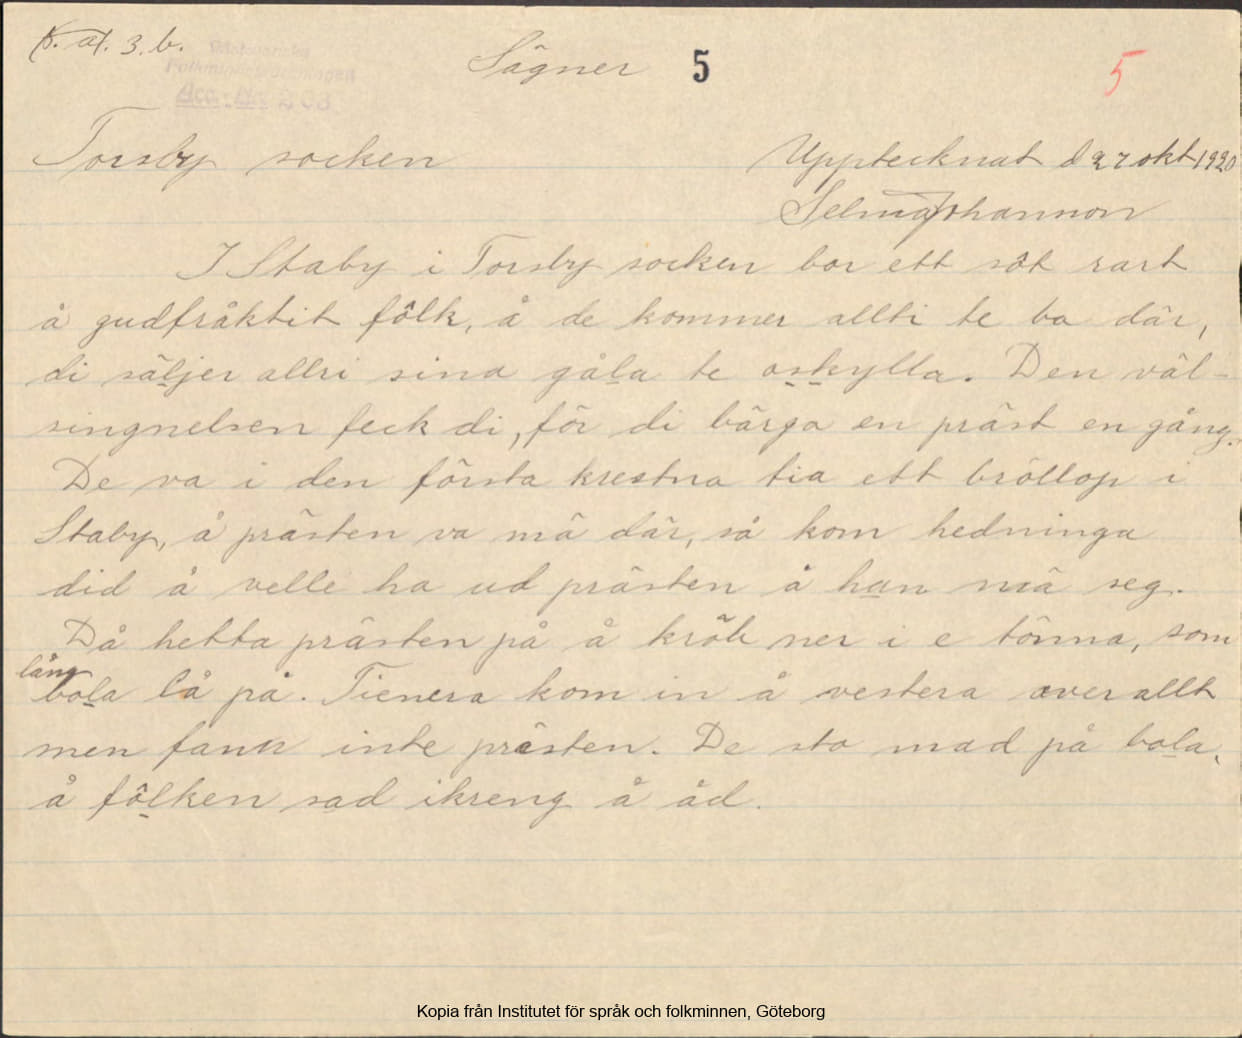 3. b.
Västsvenska
Folkminnesföreningen
Acc. Nr
Sägner 5 5
Torsby socken Upptecknat d 27 okt 1920
Selma Johannson
I Staby i Torsby socken bor ett sôt rart
å gudfråktit fôlk, å de kommer allti te bo där,
di säljer allri sina gåla te oskylla. Den väl-
singnelsen feck di, för di bärga en präst en gång.
De va i den första krestna tia ett bröllop i
Staby, å prästen va mä där, så kom hedninga
did å velle ha ud prästen å han mä seg.
Då hetta prästen på å kröb ner i e tönna, som
lång
bola lå på. Tienera kom in å vestera averallt
men fann inte prästen. De sto mad på bola,
å fôlken sad ikreng å åd.
Kopia från Institutet för språk och folkminnen, Göteborg